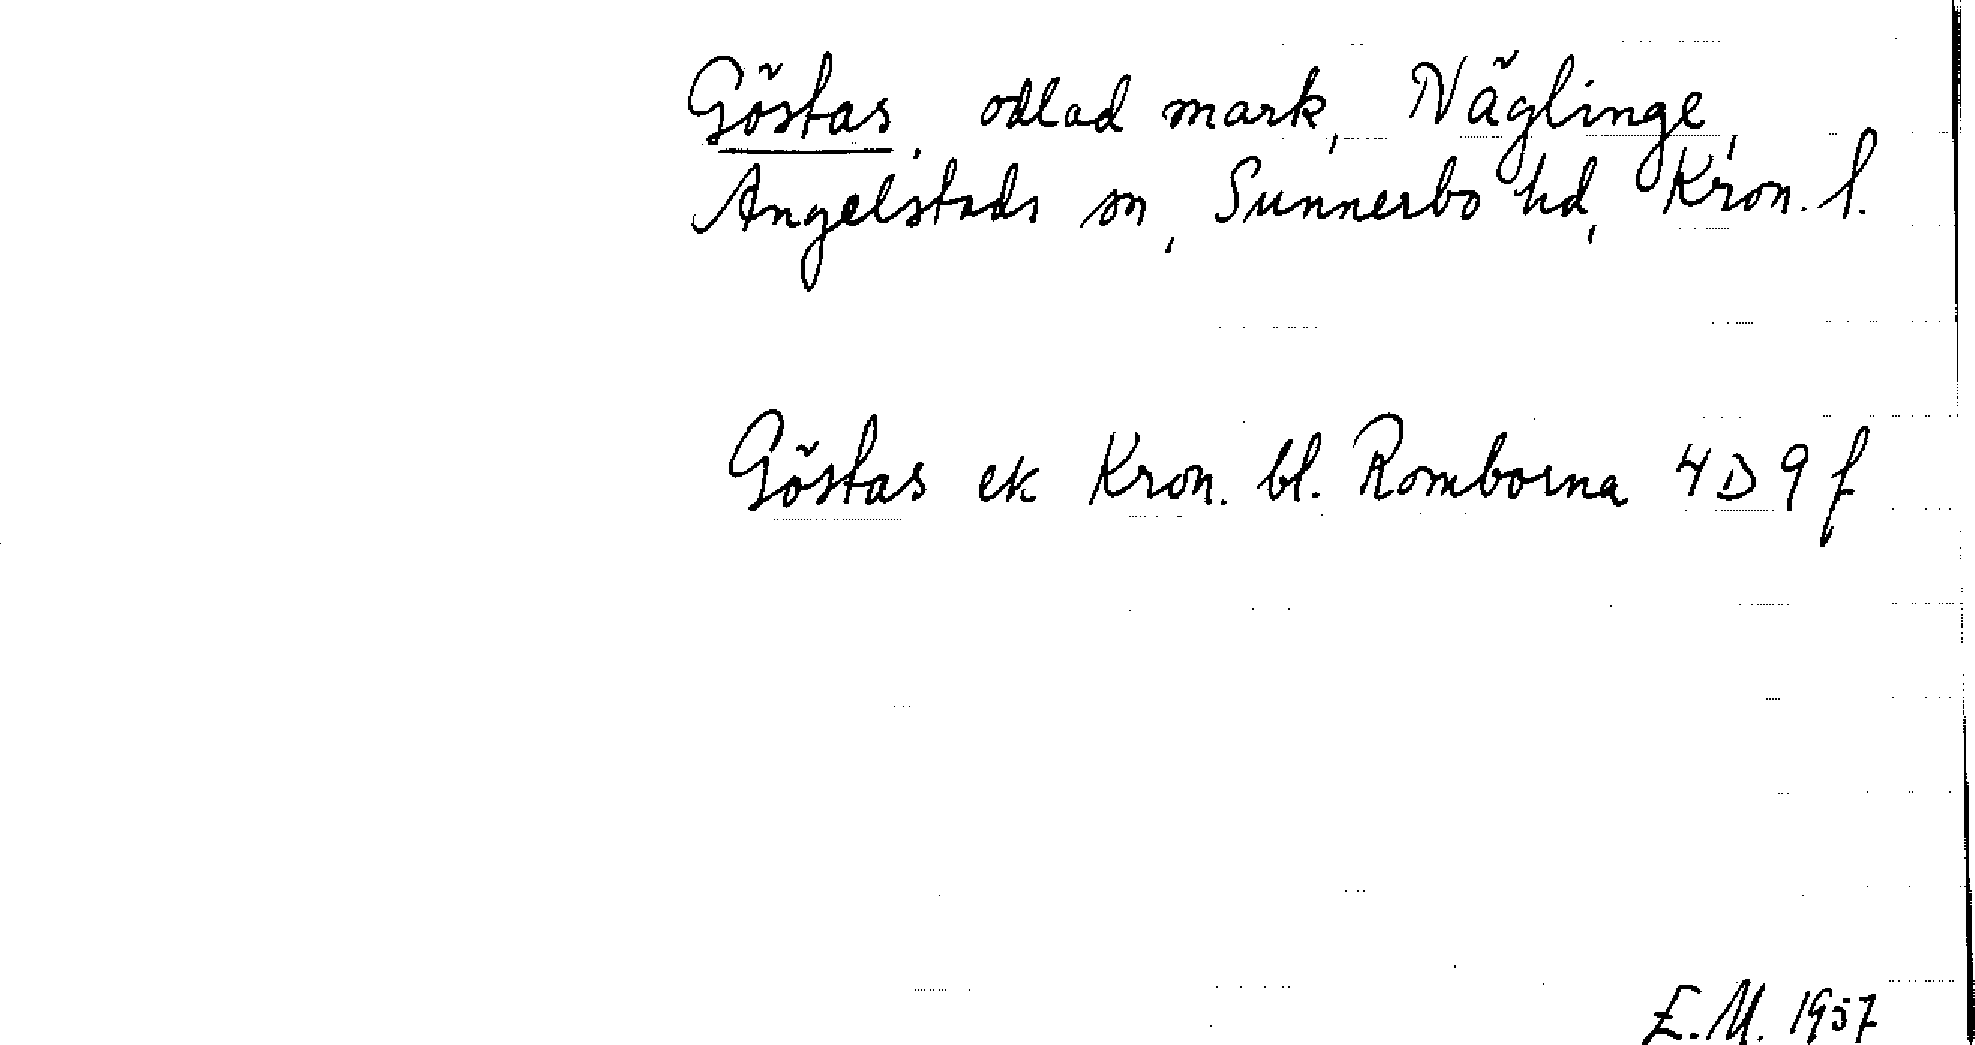 Göstas, odlad mark, Näglinge,
Angelstads sn, Sunnerbo hd, Kron. l.
Göstas ek Kron. bl. Romborna 4 D 9 f
E.M. 1957